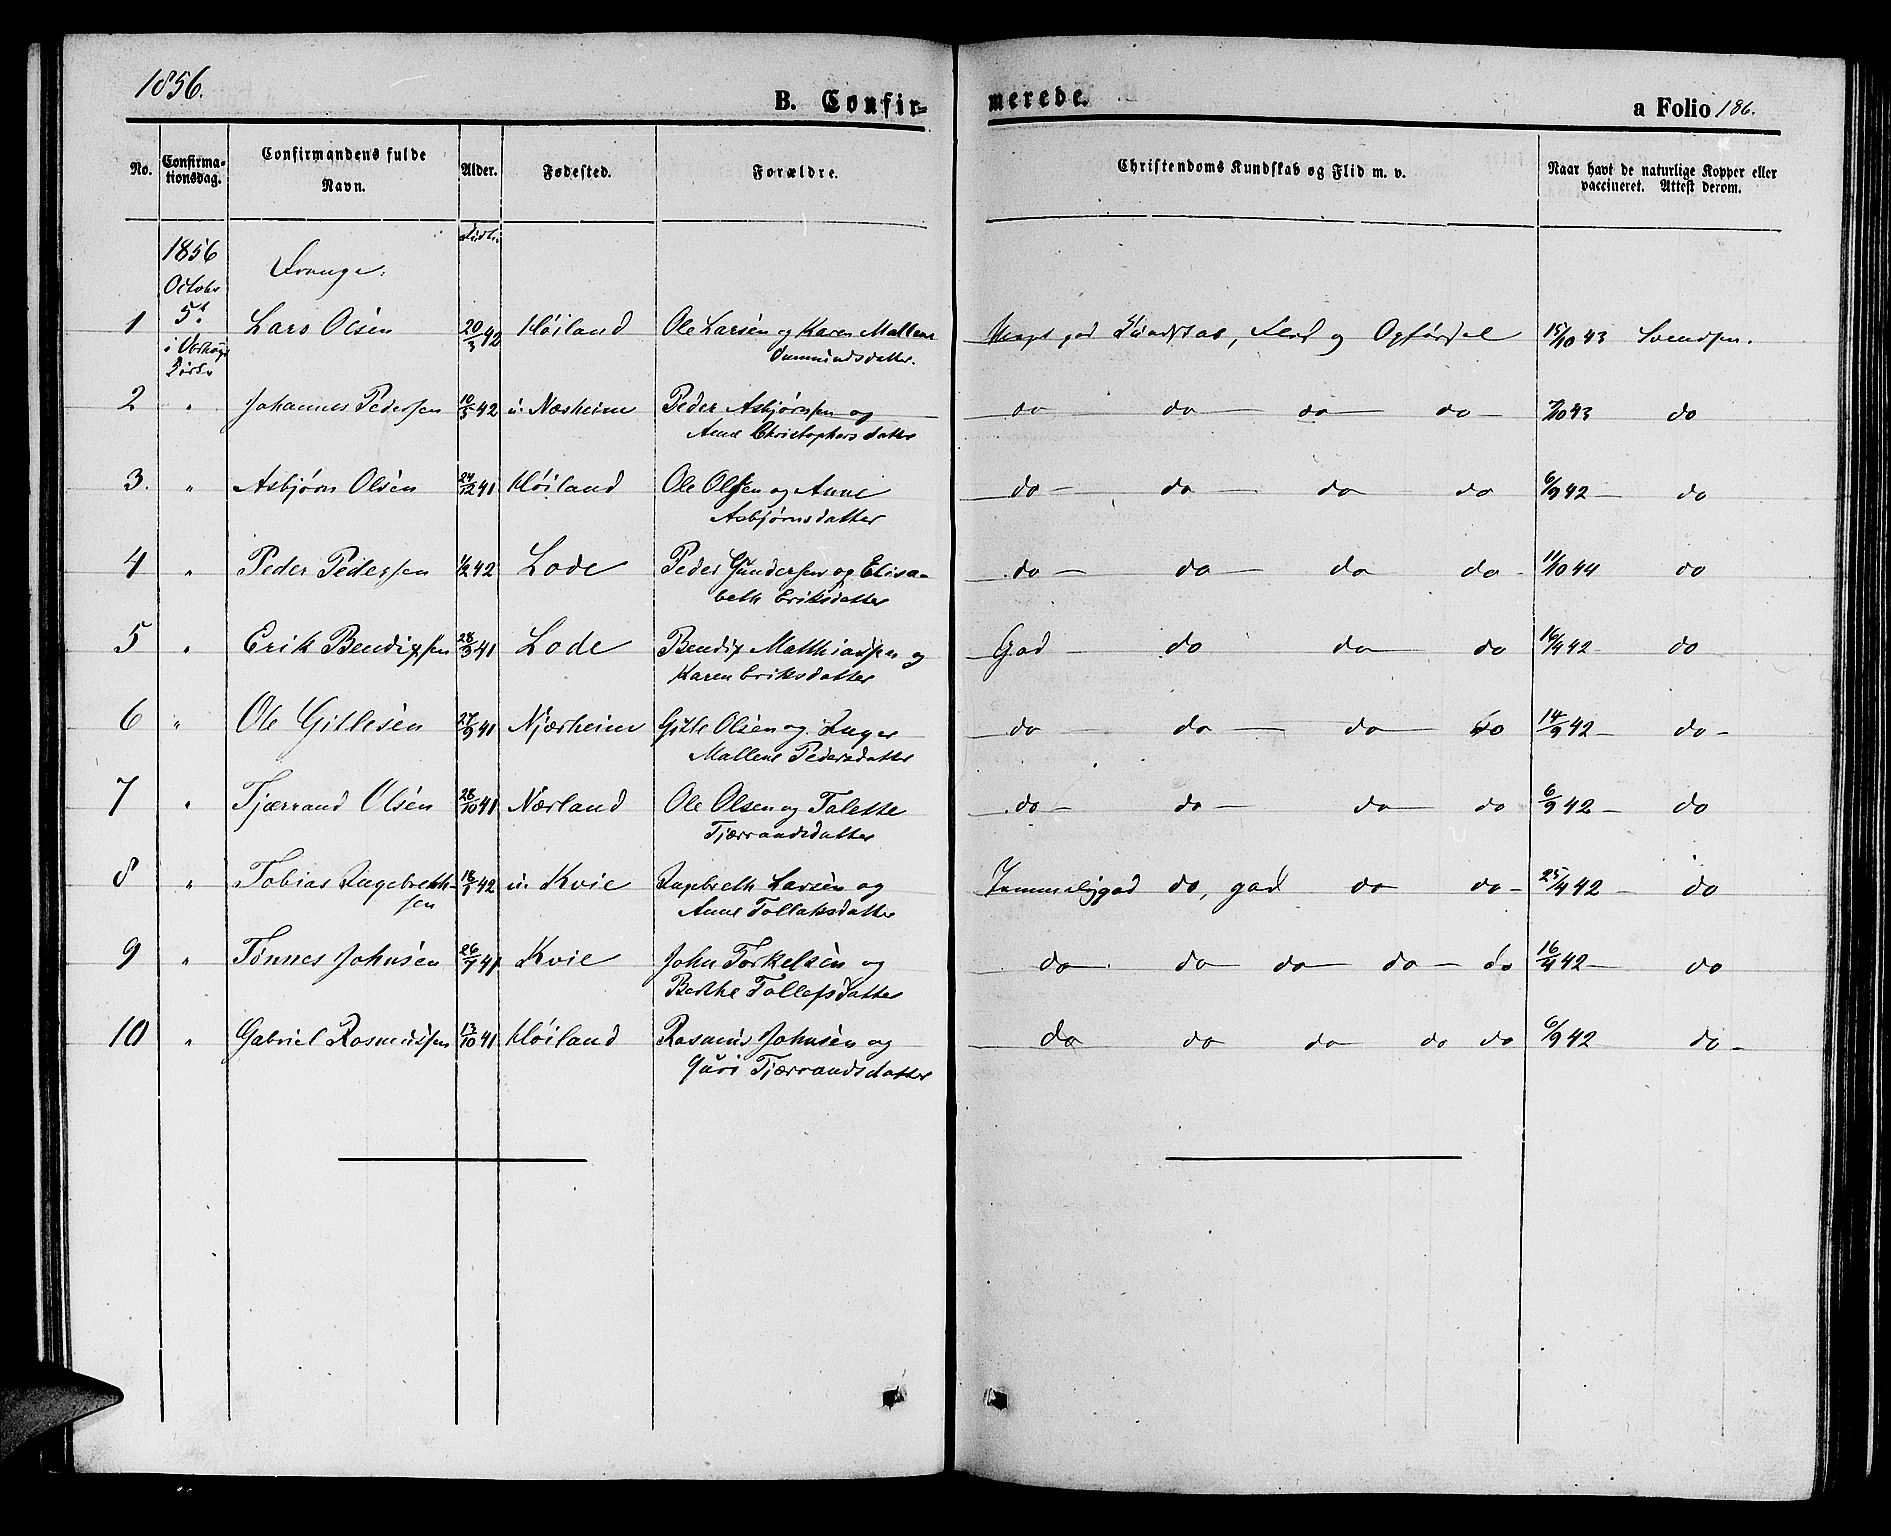 1856.
B. Confir=
merede.
a Folio 186.
No.
Confirma-
tionsdag.
Confirmandens fulde
Navn.
Alder.
Fødested.
Forældre.
Christendoms Kundskab og Flid m. v.
Naar havt de naturlige Kopper eller
vaccineret. Attest derom.
1856
Octobr
5t
Drenge.
1 Lars Olsen 20/3 42 Høiland Ole Larsen og Karen Mallene
Meget god Kundskab, Flid og Opførsel 15/10 43 Svendsen.
2 " Johannes Pedersen 10/5 42 u. Næsheim Peder Asbjørnsen og
Anne Christophersdatter
do do do do 7/10 43 do
3. " Asbjørn Olsen 24/12 41 Høiland Ole Olsen og Anne
Asbjørnsdatter
do do do do 6/9 42 do
4 " Peder Pedersen 1/2 42 Lode Peder Gundersen og Elisa-
beth Eriksdatter
do do do do 11/10 44 do
5 " Erik Bendixsen 28/9 41 Lode Bendix Matthiassen og
Karen Eriksdatter
God do do do 16/4 42 do
6 " Ole Gitlesen 27/9 41 Njærheim Gitle Olsen og Inger
Mallene Pedersdatter
do do do do 14/9 42 do
7 " Tjærrand Olsen 28/10 41 Nærland Ole Olsen og Talette
Tjærrandsdatter
do do do do 6/9 42 do
8 " Tobias Ingebreth-
sen 18/1 42 u. Kvie Ingebreth Larsen og
Anne Tollaksdatter
Temmelig god do, god do do 25/4 42 do
9 " Tønnes Johnsen 26/7 41 Kvie John Torkelsen og
Berthe Tollefsdatter
do do do do do 16/4 42 do
10 " Gabriel Rasmussen 13/10 41 Høiland Rasmus Johnsen og
Guri Tjærrandsdatter
do do do do do 6/9 42 do